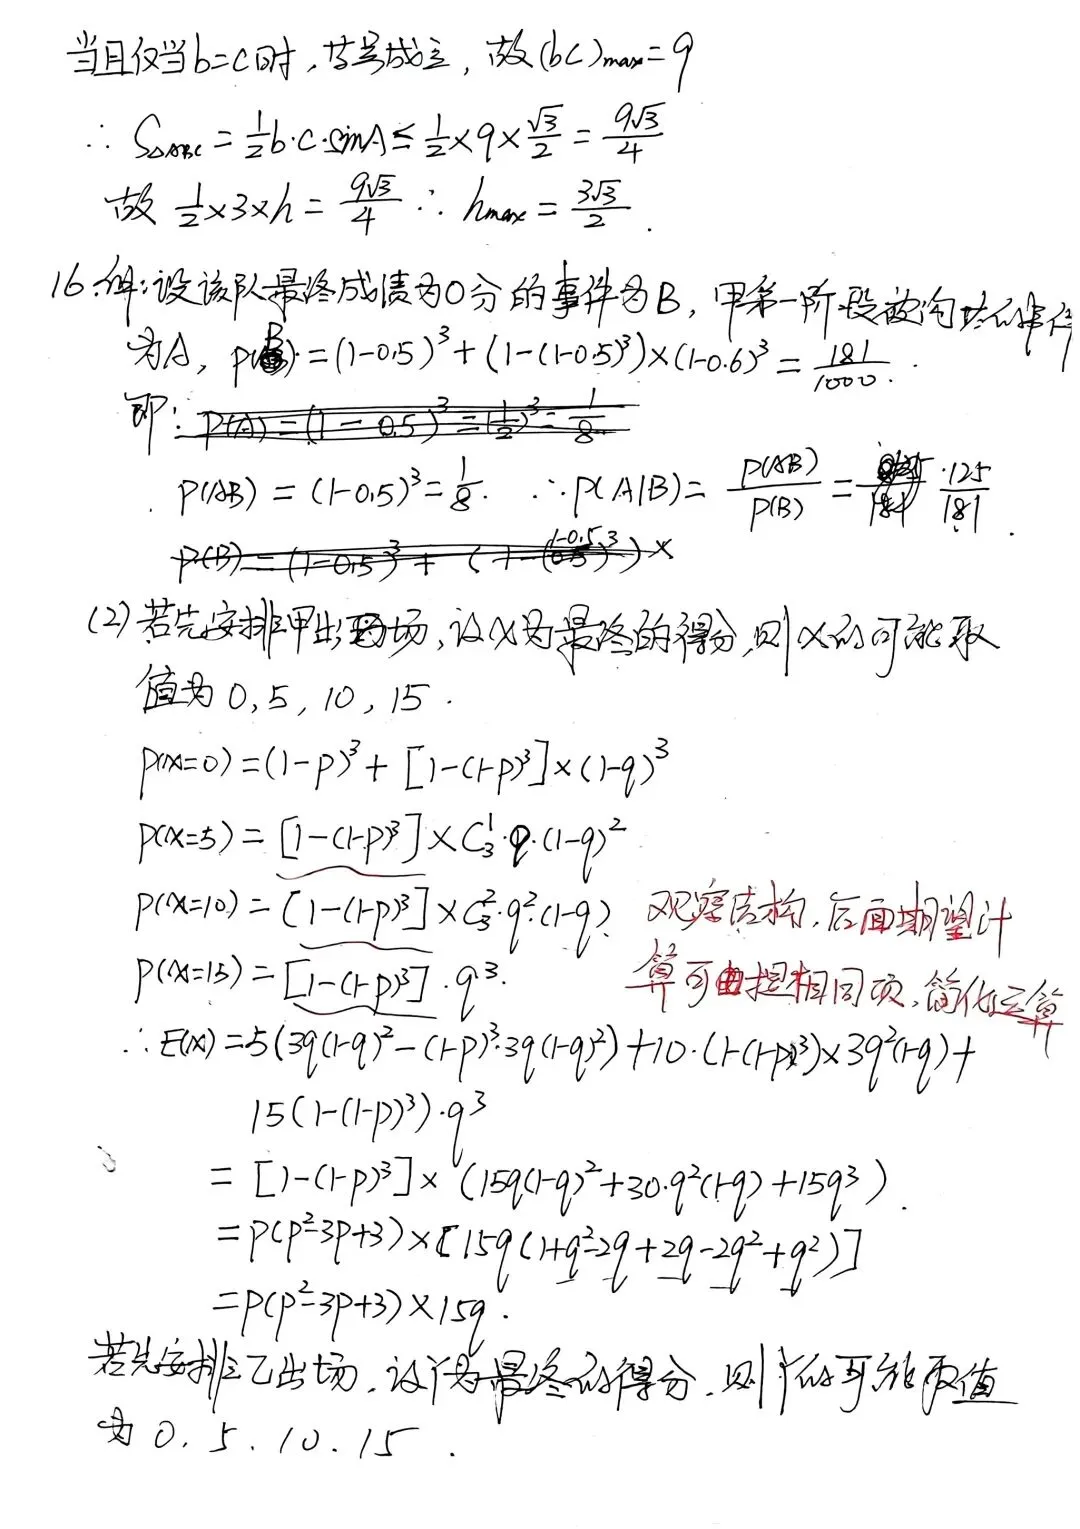 当且仅当b=c时,等号成立,故(bc)max=9
∴ S△ABC=½b·c·sinA≤½×9×√3/2=9√3/4
故 ½×3×h=9√3/4 ∴ hmax=3√3/2.
16.解:设该队最终成绩为0分的事件为B,甲第一阶段被淘汰的事件
为A, P(B)=(1-0.5)³+(1-(1-0.5)³)×(1-0.6)³=181/1000.
即: P(A)=(1-0.5)³=(½)³=1/8
P(AB)=(1-0.5)³=1/8. ∴P(A|B)=P(AB)/P(B)=125/181.
P(B)=(1-0.5)³+(1-(1-0.5)³)×
(2)若先安排甲出场,设X为最终的得分,则X的可能取
值为0,5,10,15.
P(X=0)=(1-p)³+[1-(1-p)³]×(1-q)³
P(X=5)=[1-(1-p)³]×C₃¹·q·(1-q)²
P(X=10)=[1-(1-p)³]×C₃²·q²·(1-q)
P(X=15)=[1-(1-p)³]·q³.
观察结构,后面期望计
算可提相同项,简化运算
∴E(X)=5(3q(1-q)²-(1-p)³·3q(1-q)²)+10·(1-(1-p)³)×3q²(1-q)+
15(1-(1-p)³)·q³
=[1-(1-p)³]×(15q(1-q)²+30·q²(1-q)+15q³).
=p(p²-3p+3)×[15q(1+q²-2q+2q-2q²+q²)]
=p(p²-3p+3)×15q.
若先安排乙出场,设Y为最终的得分,则Y的可能取值
为0.5.10.15.